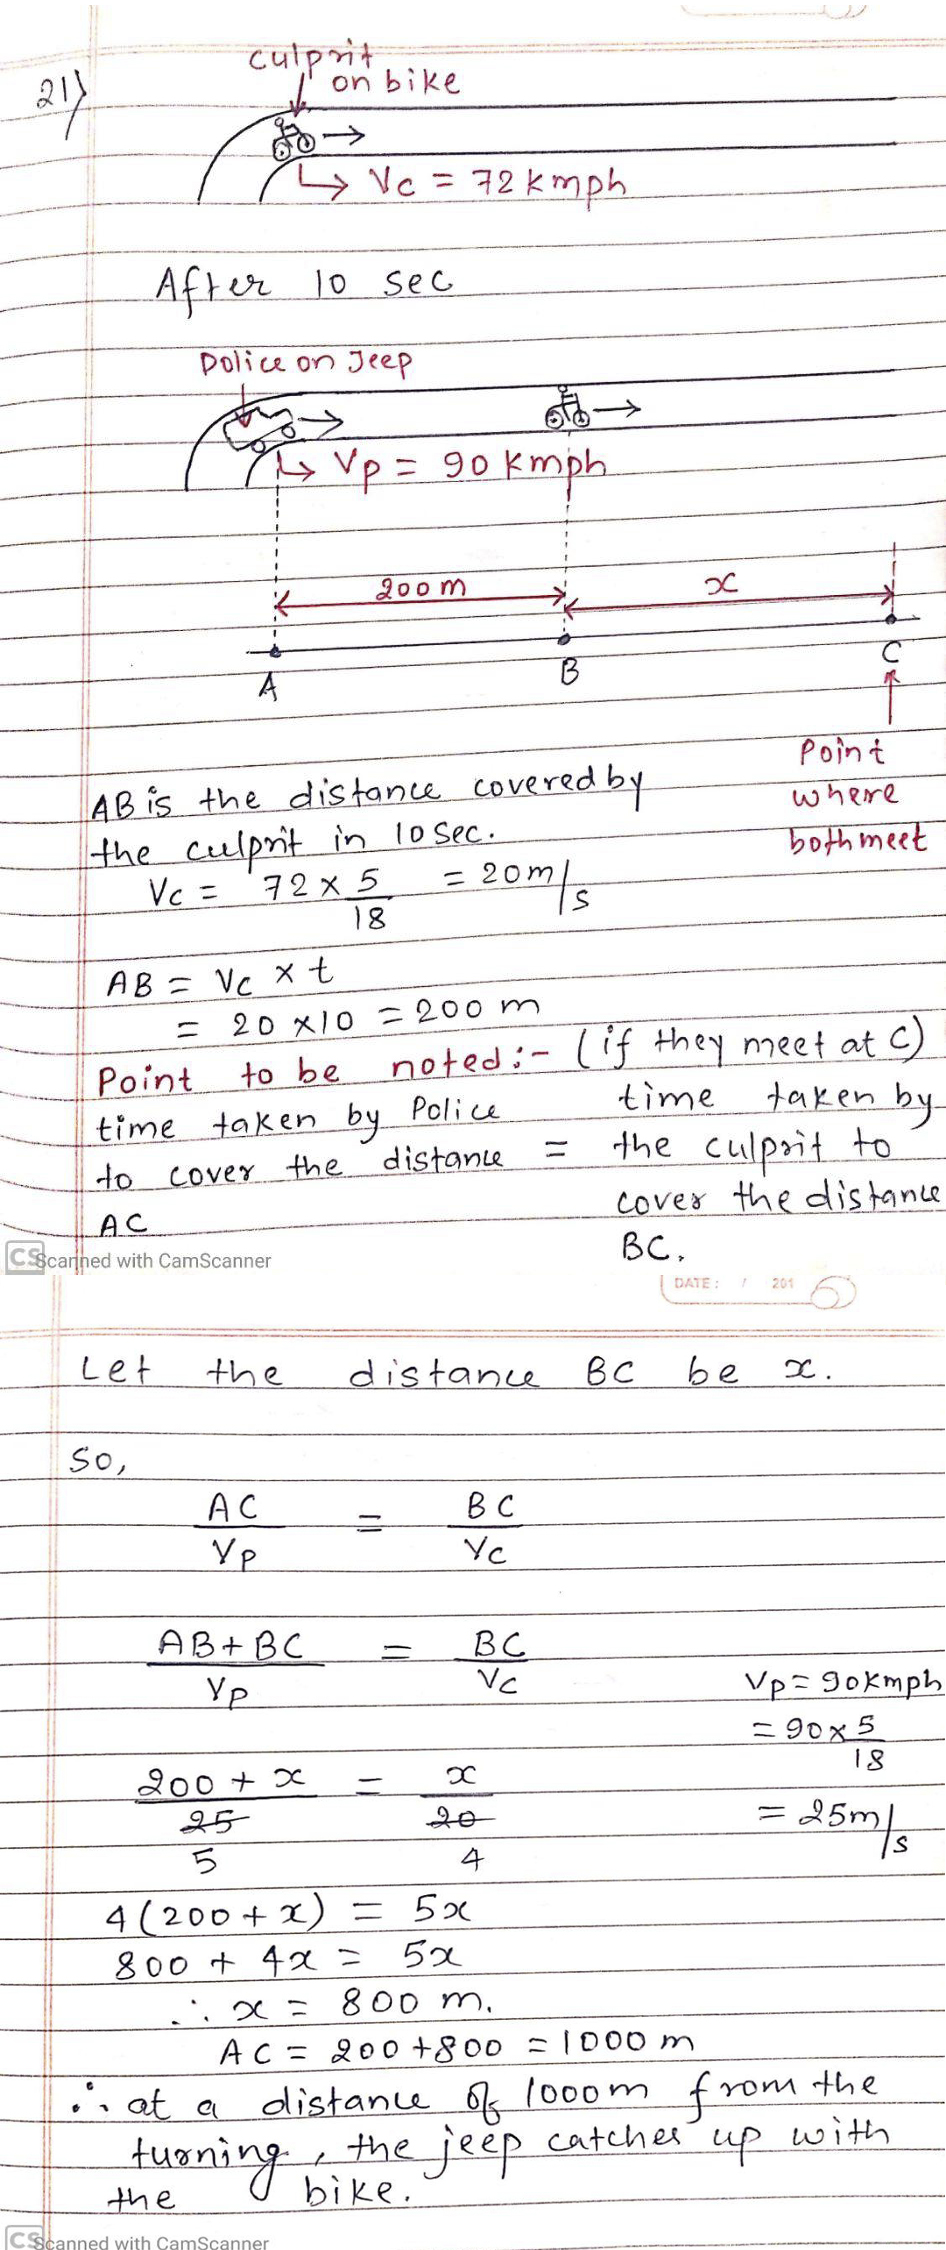 21)
culprit
on bike
Vc = 72 kmph
After 10 sec
Police on Jeep
Vp = 90 kmph
200m
x
A
B
C
Point
where
both meet
AB is the distance covered by
the culprit in 10 sec.
Vc = 72 × 5 = 20m/s
18
AB = Vc × t
= 20 × 10 = 200 m
Point to be noted:- (if they meet at C)
time taken by Police
to cover the distance =
AC
time taken by
the culprit to
cover the distance
BC.
CS Scanned with CamScanner
DATE: / 201
Let the distance BC be x.
So,
AC = BC
Vp Vc
AB + BC = BC
Vp Vc
Vp = 90kmph
= 90 × 5
18
= 25m/s
200 + x = x
25 20
5 4
4(200 + x) = 5x
800 + 4x = 5x
∴ x = 800 m.
AC = 200 + 800 = 1000 m
∴ at a distance of 1000m from the
turning, the jeep catches up with
the bike.
CS Scanned with CamScanner